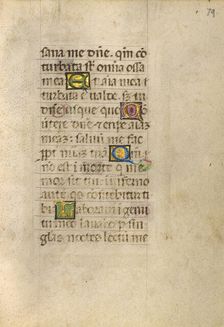 79
sana me dñe. qm̃ con
turbata st̃ om̃ia ossa
mea: Et aĩa mea
turbata ẽ valde.
dñe usque quo
Con
uertere dñe & eripe aĩaz
meaz: salvũ me fac
ppt̃ miaz tuaz
Qm̃
no est i morte q me
mor sit tui: i inferno
aute quis confitebitur ti
bi
Laboravi i gemitu
meo lavabo p sin
glas noctes lectũ me